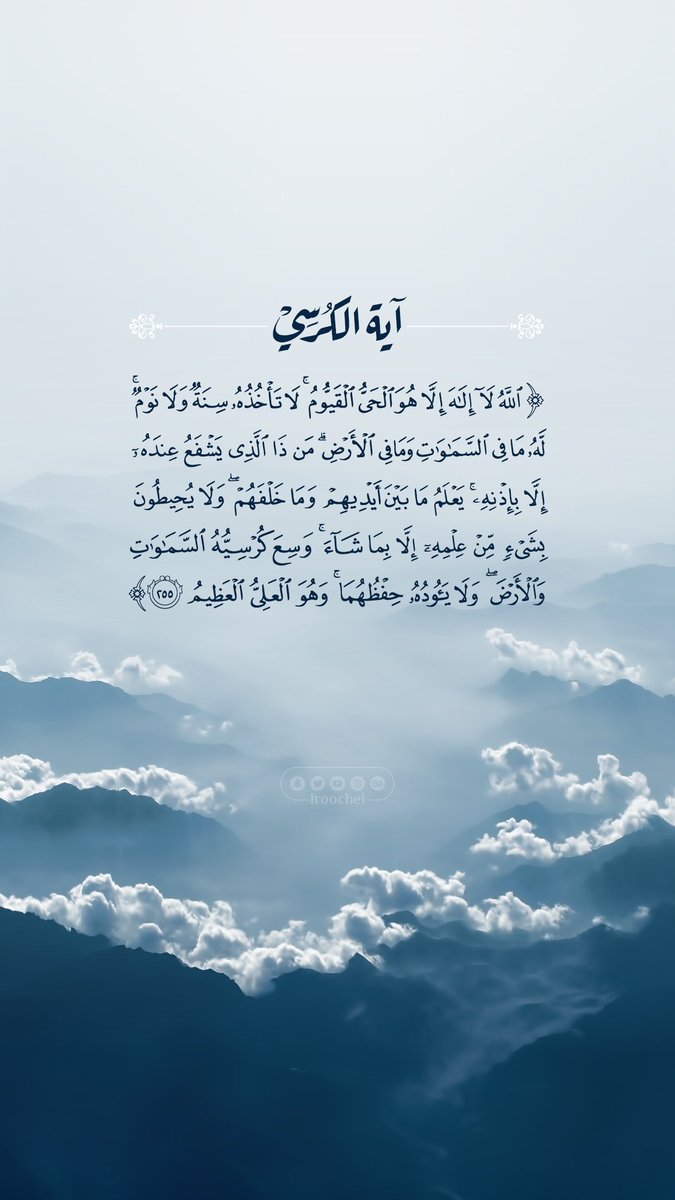 آية الكُرسِيْ
﴿ ٱللَّهُ لَآ إِلَٰهَ إِلَّا هُوَ ٱلْحَىُّ ٱلْقَيُّومُ ۚ لَا تَأْخُذُهُۥ سِنَةٌ وَلَا نَوْمٌ ۚ
لَّهُۥ مَا فِى ٱلسَّمَٰوَٰتِ وَمَا فِى ٱلْأَرْضِ ۗ مَن ذَا ٱلَّذِى يَشْفَعُ عِندَهُۥٓ
إِلَّا بِإِذْنِهِۦ ۚ يَعْلَمُ مَا بَيْنَ أَيْدِيهِمْ وَمَا خَلْفَهُمْ ۖ وَلَا يُحِيطُونَ
بِشَىْءٍ مِّنْ عِلْمِهِۦٓ إِلَّا بِمَا شَآءَ ۚ وَسِعَ كُرْسِيُّهُ ٱلسَّمَٰوَٰتِ
وَٱلْأَرْضَ ۖ وَلَا يَـُٔودُهُۥ حِفْظُهُمَا ۚ وَهُوَ ٱلْعَلِىُّ ٱلْعَظِيمُ ٢٥٥ ﴾
iroochel